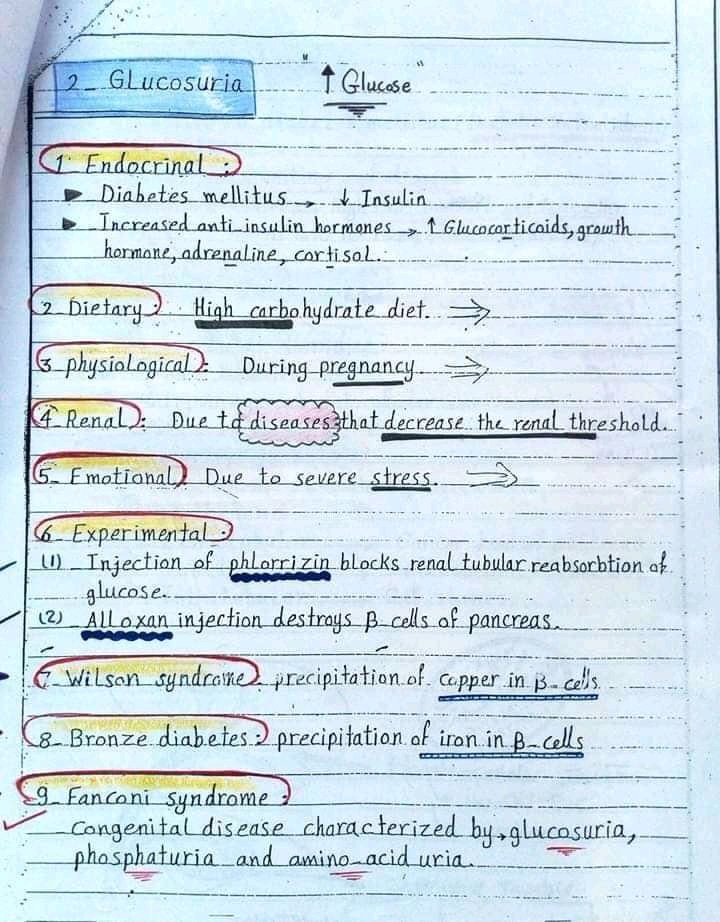 2- GLucosuria "↑ Glucose"
1- Endocrinal :
► Diabetes mellitus → ↓ Insulin
► Increased anti-insulin hormones → ↑ Glucocorticoids, growth
hormone, adrenaline, cortisol.
2- Dietary : High carbohydrate diet. ⇒
3- physiological : During pregnancy. ⇒
4- Renal : Due to diseases that decrease the renal threshold.
5- Emotional : Due to severe stress. ⇒
6- Experimental :
(1) - Injection of phlorrizin blocks renal tubular reabsorbtion of
glucose.
(2) - Alloxan injection destroys β-cells of pancreas.
7- Wilson syndrome : precipitation of copper in β-cells
8- Bronze diabetes : precipitation of iron in β-cells
9- Fanconi syndrome :
Congenital disease characterized by, glucosuria,
phosphaturia and amino-acid uria.